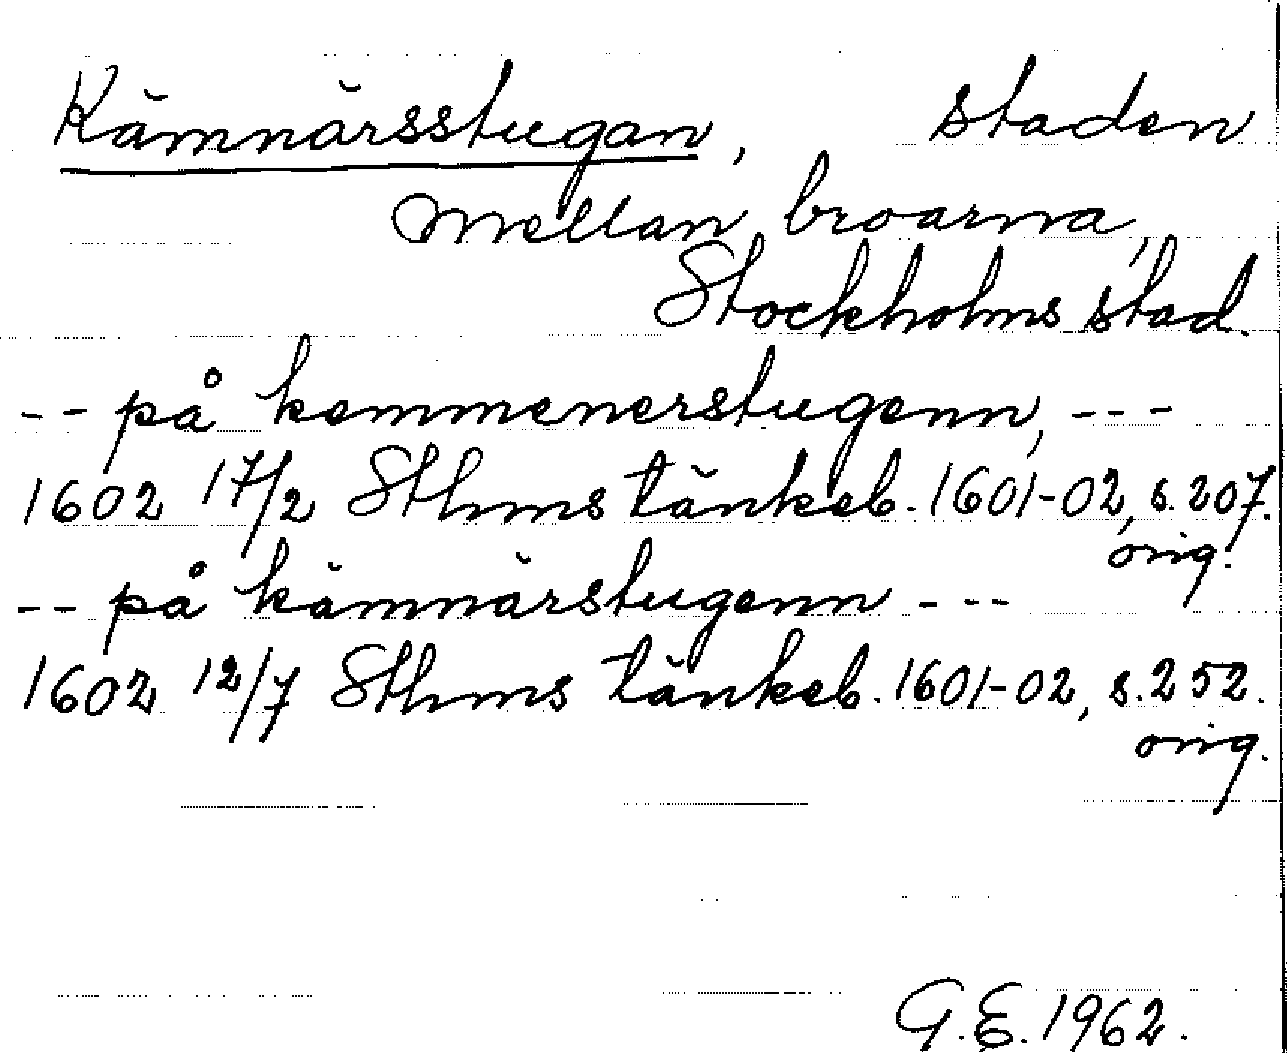 Kämnärsstugan, staden
mellan broarna,
Stockholms stad.
-- på kemmenerstugenn, ---
1602 17/2 Sthms tänkeb. 1601-02, s. 207.
orig.
-- på kämnärstugenn ---
1602 12/7 Sthms tänkeb. 1601-02, s. 252.
orig.
G.E. 1962.